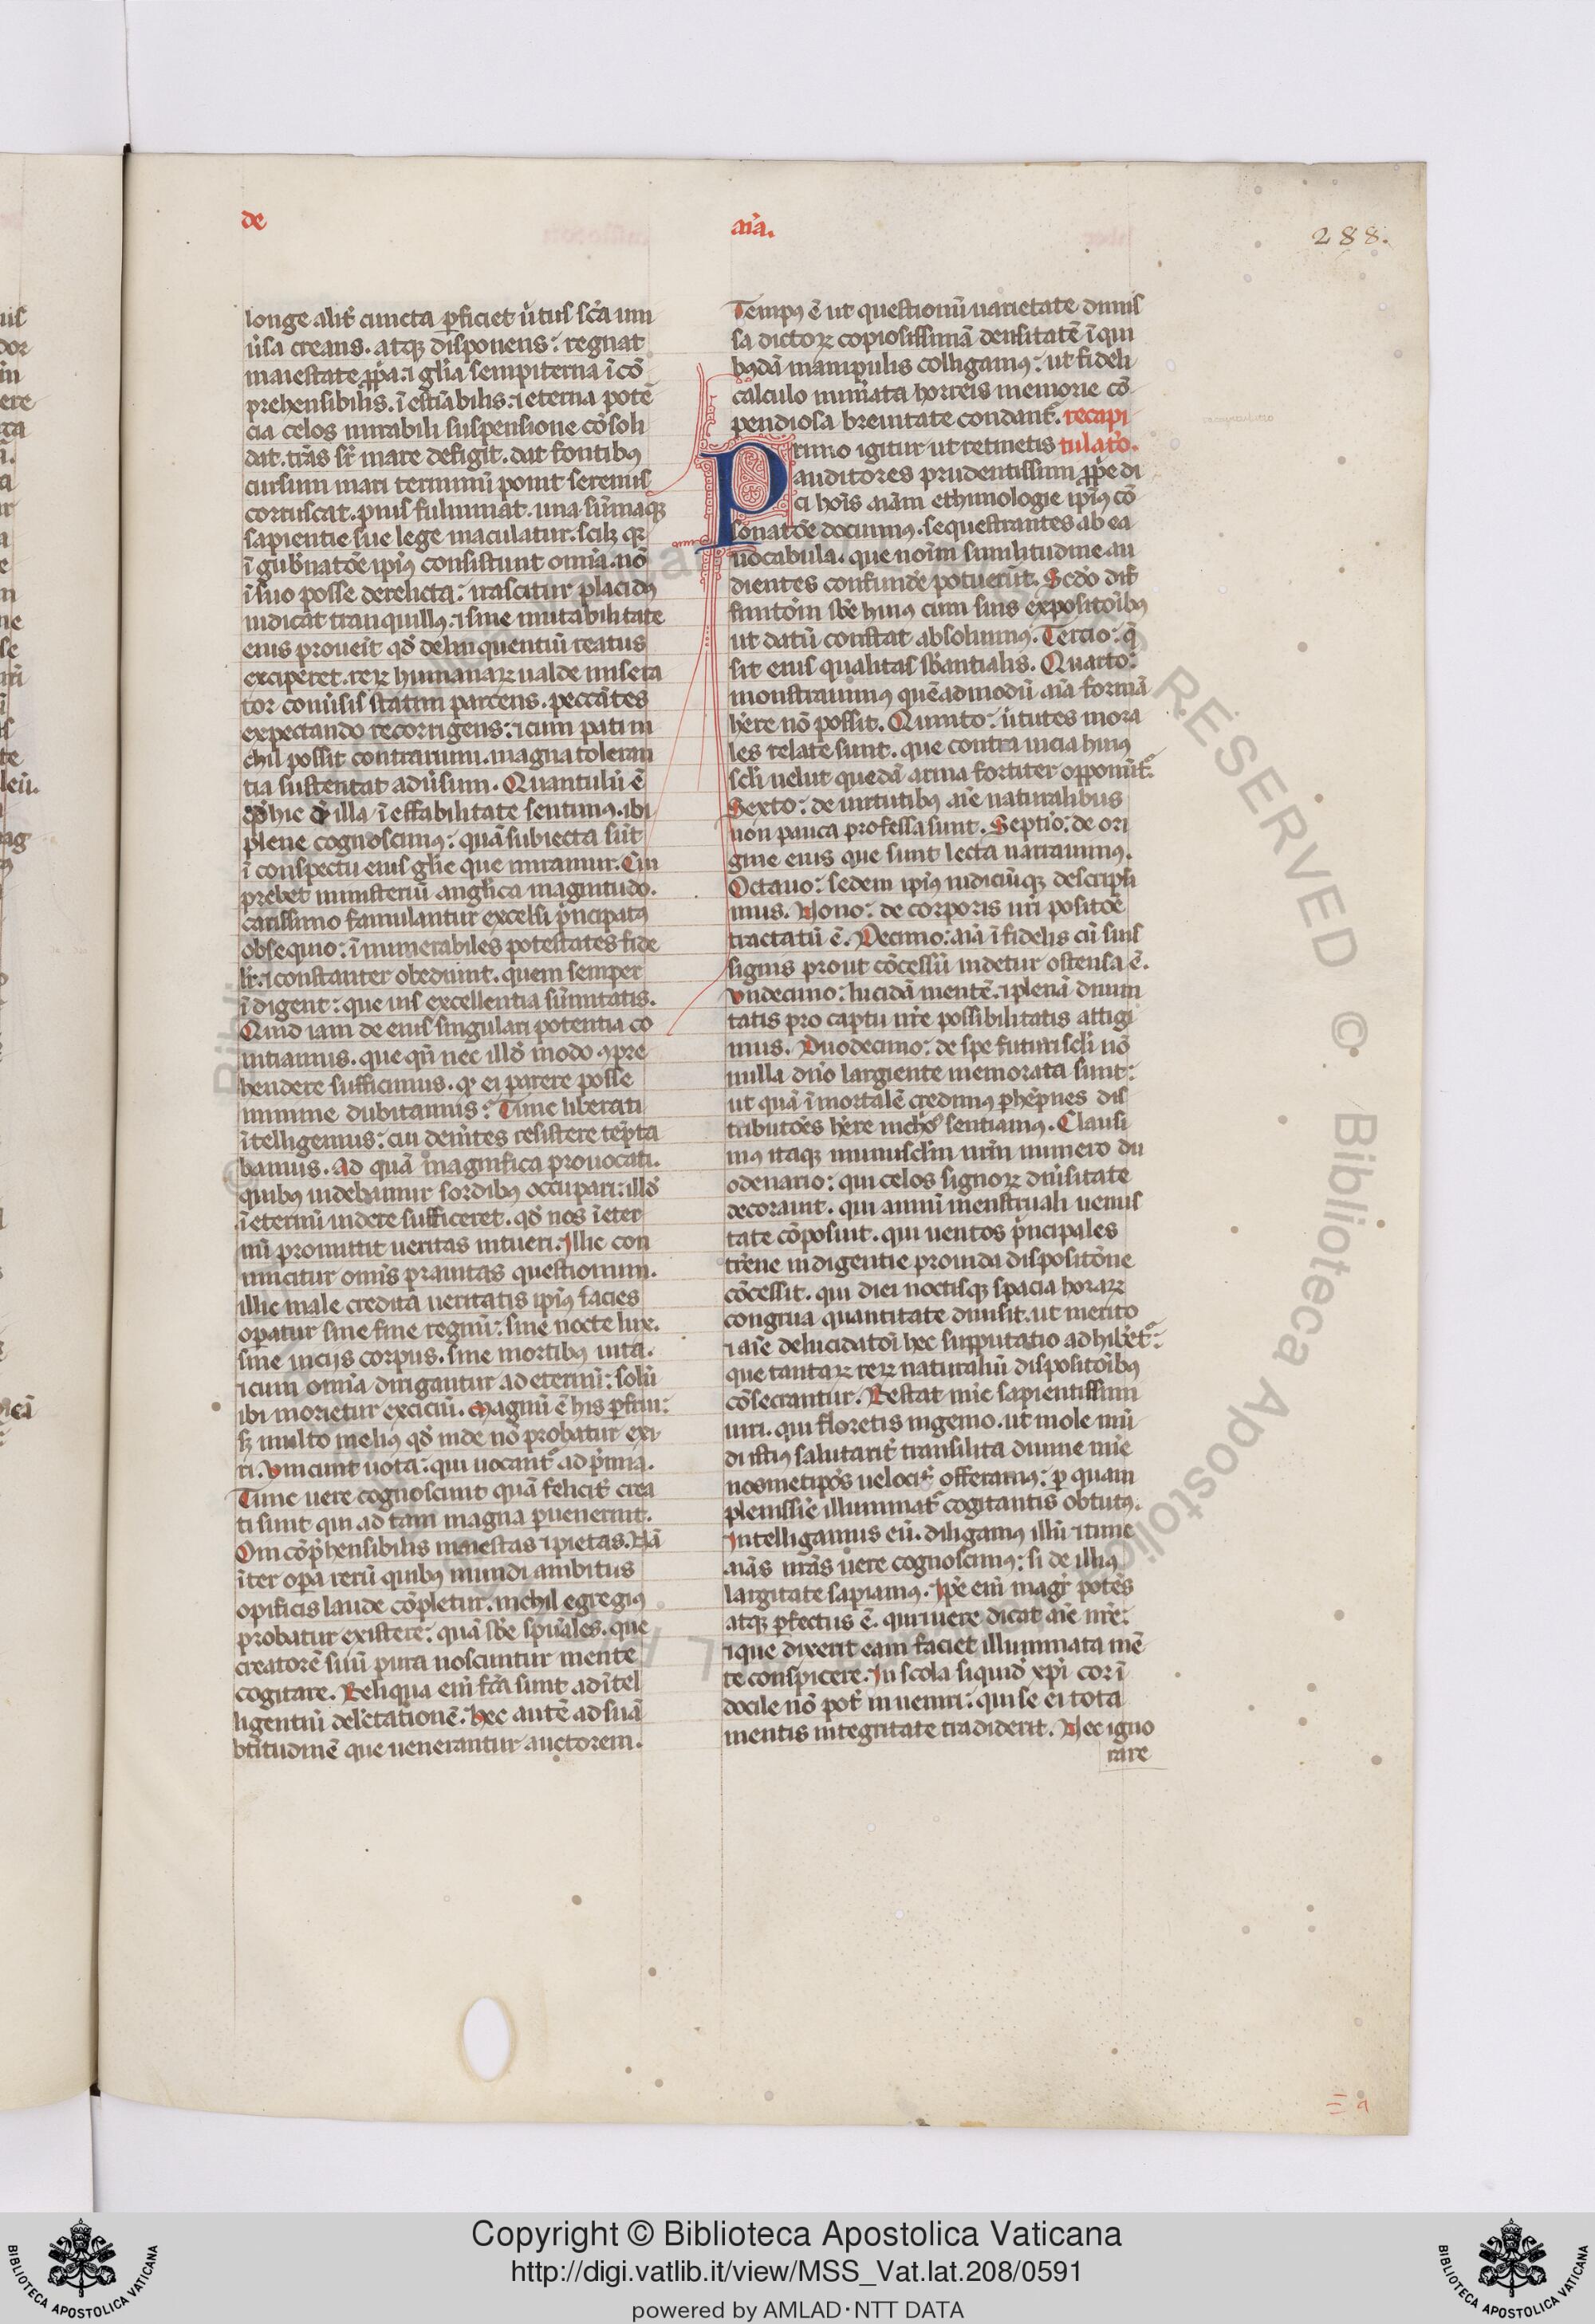 de
aīa.
288.
longe alit᷑ cuncta ꝑficiet ůtus sc̄a uni
ůsa creans. atqꝫ disponens: regnat
maiestate ꝓpͥa. ⁊ gl̄ia sempiterna īcō
prehensibilis. īestīabilis. ⁊ eterna potē
cia celos mirabili suspensione cōsoli
dat. tr̄as sr̄ mare defigit. dat fontibꝰ
cursum mari terminū ponit serenus
corruscat. pius fulminat. una sūmaqꝫ
sapientie sue lege maculatur. scilꝫ qꝛ
ī gub̄natōe ipīꝰ consistunt omīa. nō
ī suo posse derelicta: irascitur placidꝰ
iudicat tranquillꝰ. ⁊ sine mutabilitate
eius proueīt qd̓ delinquentiū reatus
exciperet. reꝝ humanaꝝ ualde misera
tor conůsis statim parcens. peccātes
expectando recorrigens: ⁊ cum pati ni
chil possit contrarium. magna toleran
tia sustentat adůsum. Quantulū ē
qd̓ hic de illa īeffabilitate sentimꝰ. ibi
plene cognoscimꝰ: quā subiecta sūt
ī conspectu eius gl̄ie que miramur. Cui
prebet ministeriū angl̄ica magnitudo.
carissimo famulantur excelsi pͥncipatꝰ
obsequio: īnumerabiles potestates fide
lr̄. ⁊ constanter obediunt. quem semper
īdigent: que uis excellentia sūmitatis.
Quid iam de eius singulari potentia co
nitiamus. que qn̄ nec illo modo ꝯpre
hendere sufficimus. qꝛ ei parere posse
minime dubitamus: Tunc liberati
ītelligemus: cui demētes resistere tēpta
bamus. Ad quā magnifica prouocati.
quibꝰ uidebamur sordibꝰ occupari: illd̓
īeternū uidere sufficeret. qd̓ nos īeter
nū promittit ueritas intueri. Illic con
uincitur omīs prauitas questionum.
illic male credita ueritatis ipīꝰ facies
operatur sine fine regnū: sine nocte lux.
sine uicijs corpus. sine mortibꝰ uita.
⁊ cum omīa dirigantur ad eternū: solū
ibi morietur exciciū. Magnū ē his ꝑfrui:
sꝫ multo meliꝰ qd̓ inde nō probatur exi
ri. Vincunt uota: qui uocant᷑ ad pͥmia.
Tunc uere cognoscunt quā felicit᷑ crea
ti sunt qui ad tam magna ꝑuenerunt.
O incōpͥhensibilis maiestas ⁊ pietas. Nā
īter opa rerū quibꝰ mundi ambitus
opificis laude cōpletur. nichil egregiꝰ
probatur existere: quā sb̄e spūales. que
creatorē suū pura noscuntur mente
cogitare. Reliqua enī fc̄a sunt ad ītel
ligentiū delc̄tationē. Hec autē ad suā
bt̄itudinē que uenerantur auctorem.
Tempꝰ ē ut questionū uarietate dimis
sa dictoꝝ copiosissimā densitatē ī qui
bꝰdā manipulis colligamꝰ: ut fideli
calculo nūiata horreis memorie cō
pendiosa breuitate condant᷑. recapi
Primo igitur ut retinetis tulat̓o.
auditores prudentissimi ꝓpͥe di
ci hoīs aīam ethimologie ipīꝰ cō
sonatōe docuimꝰ. sequestrantes ab ea
uocabula. que noīm similitudine au
dientes confunde᷑ potuerūt. Scd̓o dif
finitōm sb̄e huiꝰ cum suis expositoībꝰ
ut datū constat absoluimꝰ. Tercio: q̄
sit eius qualitas sb̄antialis. Quarto:
monstrauimꝰ quēadmodū aīa formā
hēre nō possit. Quinto: ůtutes mora
les relate sunt. que contra uicia huiꝰ
scl̄i uelut quedā arma fortiter opponūt᷑.
Sexto: de uirtutibꝰ aīe naturalibus
non pauca professa sunt. Septīo: de ori
gine eius que sunt lecta narrauimꝰ.
Octauo: sedem ipīꝰ iudiciūqꝫ descripsi
mus. Nono: de corporis nr̄i positōe
tractatū ē. Decimo: aīā īfidelis cū suis
signis prout cōcessū uidetur ostensa ē.
Vndecimo: lucidā mentē. ⁊ plenā diuini
tatis pro captu nr̄e possibilitatis attigi
mus. Duodecimo: de spe futuri scl̄i nō
nulla dn̄o largiente memorata sunt:
ut quā īmortalē credimꝰ ꝑ hēpnes dis
tributōes hēre sentiamꝰ. Clausi
mꝰ itaqꝫ munuscl̄m nr̄m numero du
odenario: qui celos signoꝝ diůsitate
decorauit. qui annū menstruali uenus
tate cōposuit. qui uentos pͥncipales
tr̄ene indigentie prouida dispositōne
cōcessit. qui diei noctisqꝫ spacia horaꝝ
congrua quantitate diuisit. ut merito
⁊ aīe delucidatōi hec supputatio adhibet᷑:
que tantaꝝ reꝝ naturaliū dispositōibꝰ
cōsecrantur. Restat nūc sapientissimi
uiri. qui floretis ingenio. ut mole mū
di istiꝰ salutarit᷑ transilita diuine mīe
nosmetipo̓s uelocit᷑ offeramꝰ: ꝑ quam
plenissīe illuminat᷑ cogitantis obtutꝰ.
Intelligamus eū. diligamꝰ illū ⁊ tunc
aīas nr̄as uere cognoscimꝰ: si de illiꝰ
largitate sapiamꝰ. Ipē enī magr̄ potēs
atqꝫ ꝑfectus ē. qui ⁊ uere dicat aīe nr̄e:
⁊ que dixerit eam faciet illuminata mē
te conspicere. In scola siquid̓ xp̄i cor ī
docile nō pot᷑ inueniri: qui se ei tota
mentis integritate tradiderit. Nec igno
rare
Copyright © Biblioteca Apostolica Vaticana
http://digi.vatlib.it/view/MSS_Vat.lat.208/0591
powered by AMLAD·NTT DATA